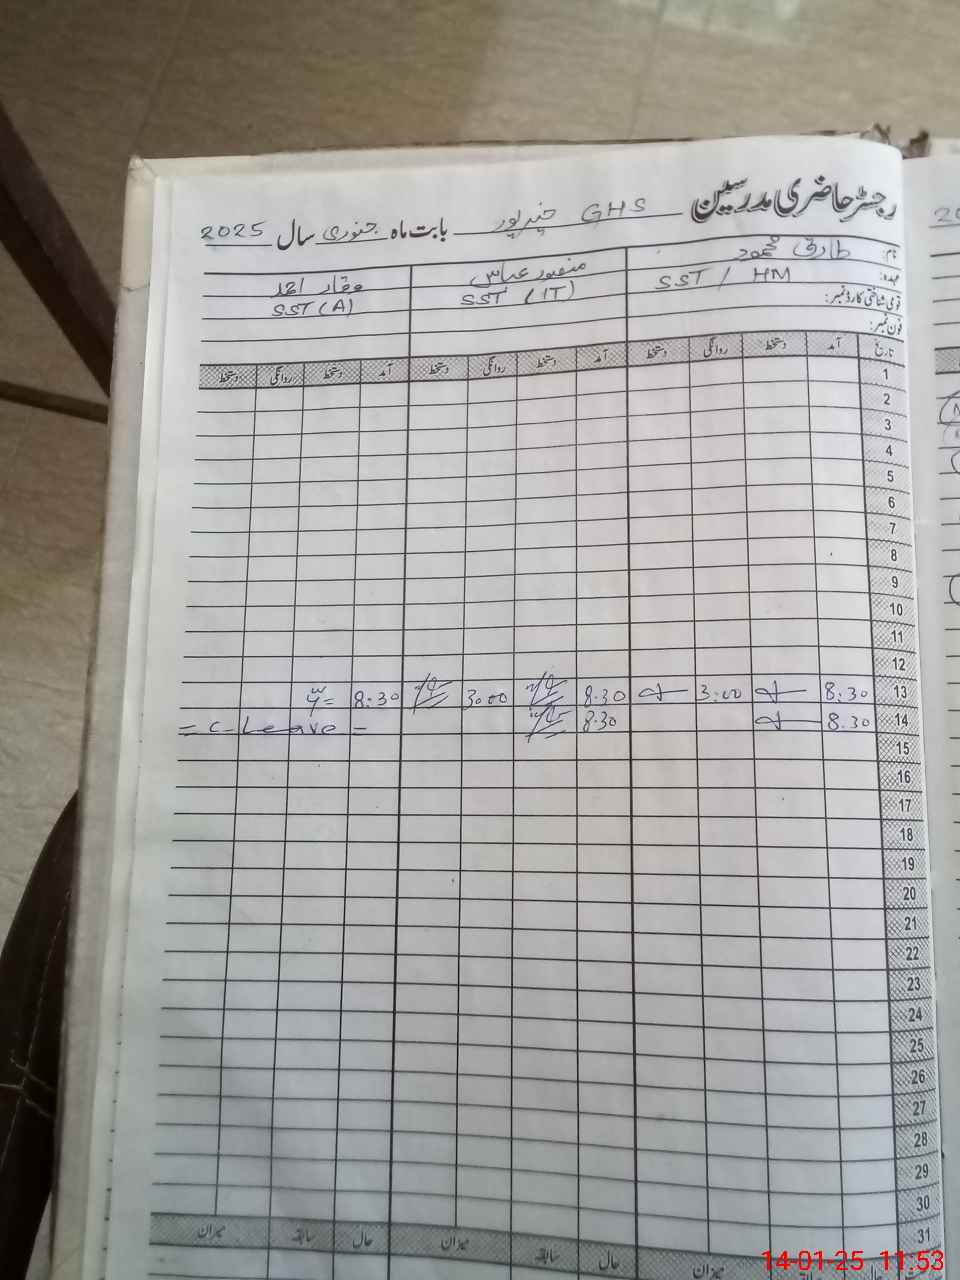 رجسٹر حاضری مدرسین GHS خیرپور بابت ماہ جنوری سال 2025
نام: طارق محمود منصور عباس وقار احمد
عہدہ: SST / HM SST (IT) SST (A)
قومی شناختی کارڈ نمبر:
فون نمبر:
تاریخ آمد دستخط روانگی دستخط آمد دستخط روانگی دستخط آمد دستخط روانگی دستخط
1
2
3
4
5
6
7
8
9
10
11
12
13 8:30 3:00 8:30 3:00 8:30
14 8:30 8:30 = C-Leave =
15
16
17
18
19
20
21
22
23
24
25
26
27
28
29
30
31
حال میزان حال سابقہ میزان حال سابقہ میزان
14-01-25 11:53